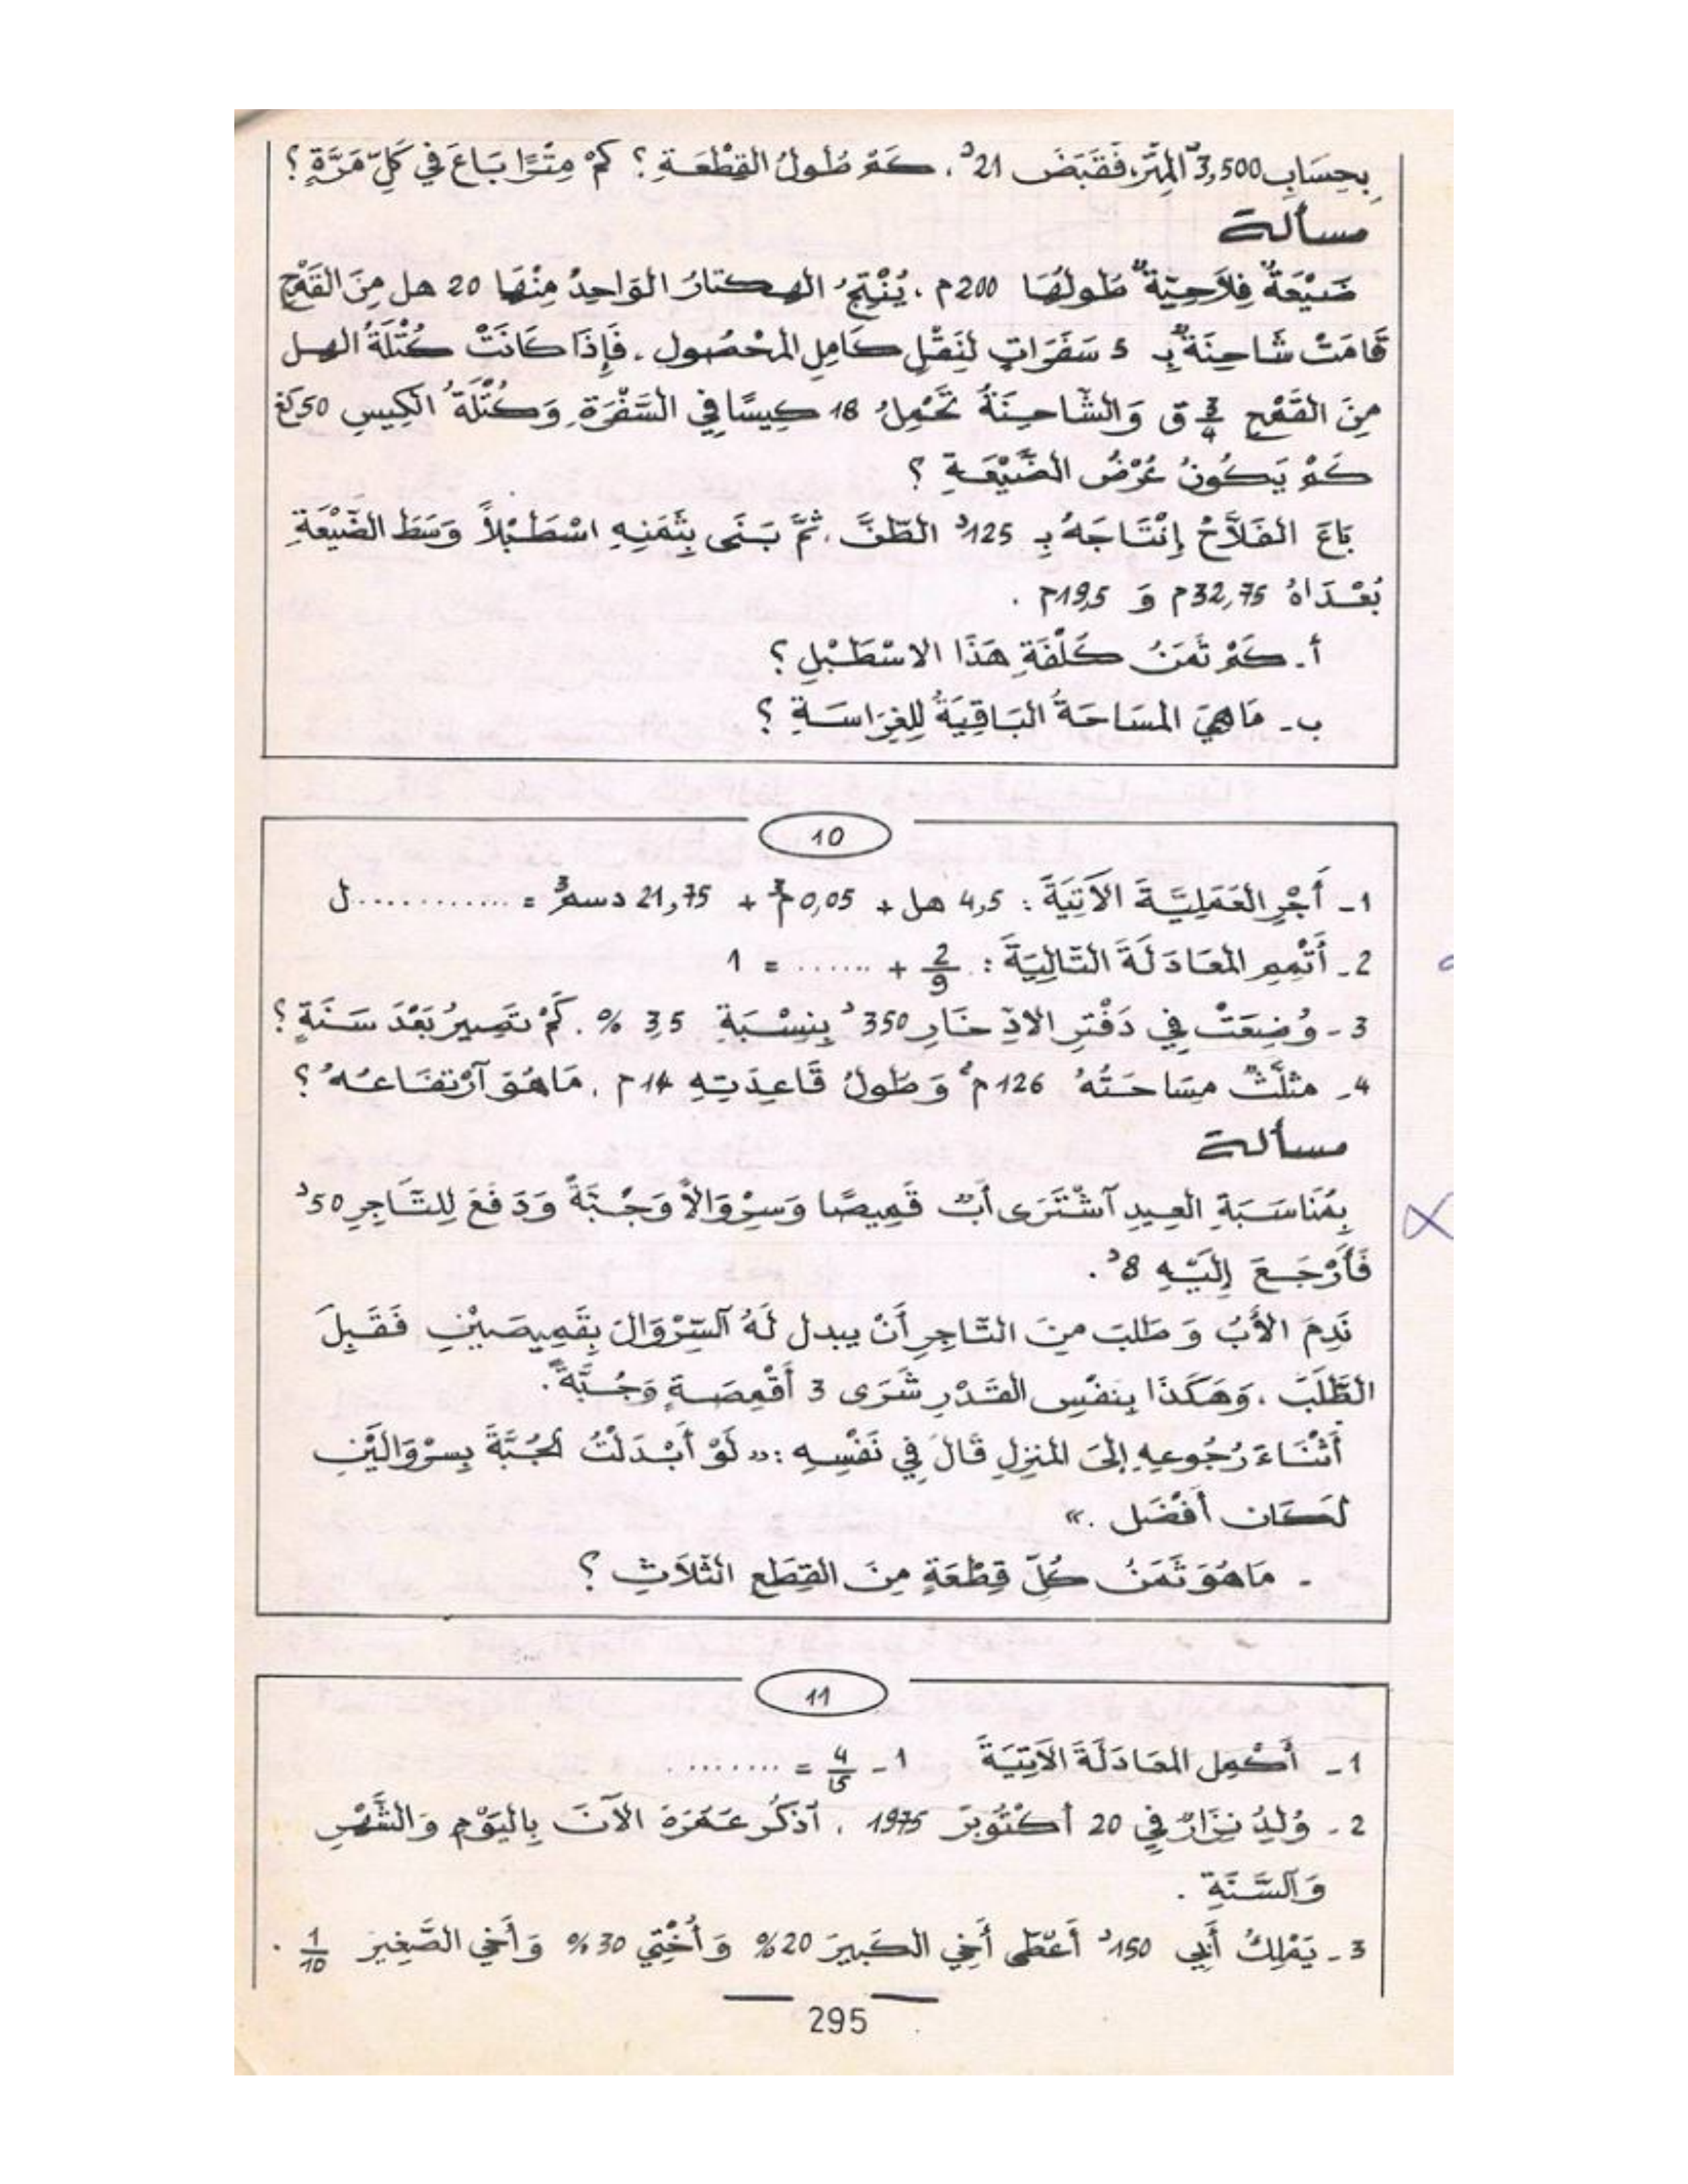 بِحِسَابِ 3,500ᵈ المِتْر، فَقَبَضَ 21ᵈ. كَمْ طُولُ القِطْعَةِ؟ كَمْ مِتْرًا بَاعَ فِي كُلِّ مَرَّةٍ؟
مسألة
ضَيْعَةٌ فِلاَحِيَّةٌ طُولُهَا 200م. يُنْتِجُ الهكتارُ الوَاحِدُ مِنْهَا 20 هل مِنَ القَمْحِ
قَامَتْ شَاحِنَةٌ بِـ 5 سَفَرَاتٍ لِنَقْلِ كَامِلِ المَحْصُولِ. فَإِذَا كَانَتْ كُتْلَةُ الهل
مِنَ القَمْحِ 3/4 ق وَالشَّاحِنَةُ تَحْمِلُ 18 كِيسًا فِي السَّفْرَةِ وَكُتْلَةُ الكِيسِ 50 كغ
كَمْ يَكُونُ عُرْضُ الضَّيْعَةِ؟
بَاعَ الفَلاَّحُ إِنْتَاجَهُ بِـ 125ᵈ الطّنَّ، ثُمَّ بَنَى بِثَمَنِهِ اسْطَبْلاً وَسَطَ الضَّيْعَةِ
بُعْدَاهُ 32,75م وَ 19,5م.
أ. كَمْ ثَمَنُ كَلْفَةِ هَذَا الاسْطَبْلِ؟
ب- مَا هِيَ المَسَاحَةُ البَاقِيَةُ لِلْغِرَاسَةِ؟
10
1- أَجْرِ العَمَلِيَّةَ الآتِيَةَ: 4,5 هل + 0,05 م³ + 21,75 دسم³ = ............ ل
2- أَتْمِمِ المُعَادَلَةَ التَّالِيَةَ: 2/9 + ....... = 1
3- وُضِعَتْ فِي دَفْتَرِ الادِّخَارِ 350ᵈ بِنِسْبَةِ 3,5 %. كَمْ تَصِيرُ بَعْدَ سَنَةٍ؟
4- مثَلَّثٌ مِسَاحَتُهُ 126م² وَطُولُ قَاعِدَتِهِ 14م. مَا هُوَ ٱرْتِفَاعُهُ؟
مسألة
بِمُنَاسَبَةِ العِيدِ ٱشْتَرَى أَبٌ قَمِيصًا وَسِرْوَالاً وَجُبَّةً وَدَفَعَ لِلتَّاجِرِ 50ᵈ
فَأَرْجَعَ إِلَيْهِ 8ᵈ.
نَدِمَ الأَبُ وَطَلَبَ مِنَ التَّاجِرِ أَنْ يبدل لَهُ ٱلسِّرْوَالَ بِقَمِيصَيْنِ فَقَبِلَ
الطَّلَبَ، وَهَكَذَا بِنَفْسِ القَدْرِ شَرَى 3 أَقْمِصَةٍ وَجُبَّةً.
أَثْنَاءَ رُجُوعِهِ إِلَى المَنزِلِ قَالَ فِي نَفْسِهِ: «لَوْ أَبْدَلْتُ الجُبَّةَ بِسِرْوَالَيْنِ
لَكَانَ أَفْضَل.»
- مَا هُوَ ثَمَنُ كُلِّ قِطْعَةٍ مِنَ القِطَعِ الثَّلاَثِ؟
11
1- أَكْمِلِ المُعَادَلَةَ الآتِيَةَ 1 - 4/15 = ........
2- وُلِدَ نِزَارٌ فِي 20 أُكْتُوبَرَ 1975. ٱذْكُرْ عُمُرَهُ الآنَ بِاليَوْمِ وَالشَّهْرِ
وَٱلسَّنَةِ.
3- يَمْلِكُ أَبِي 150ᵈ أَعْطَى أَخِي الكَبِيرَ 20% وَأُخْتِي 30% وَأَخِي الصَّغِيرَ 1/10.
295